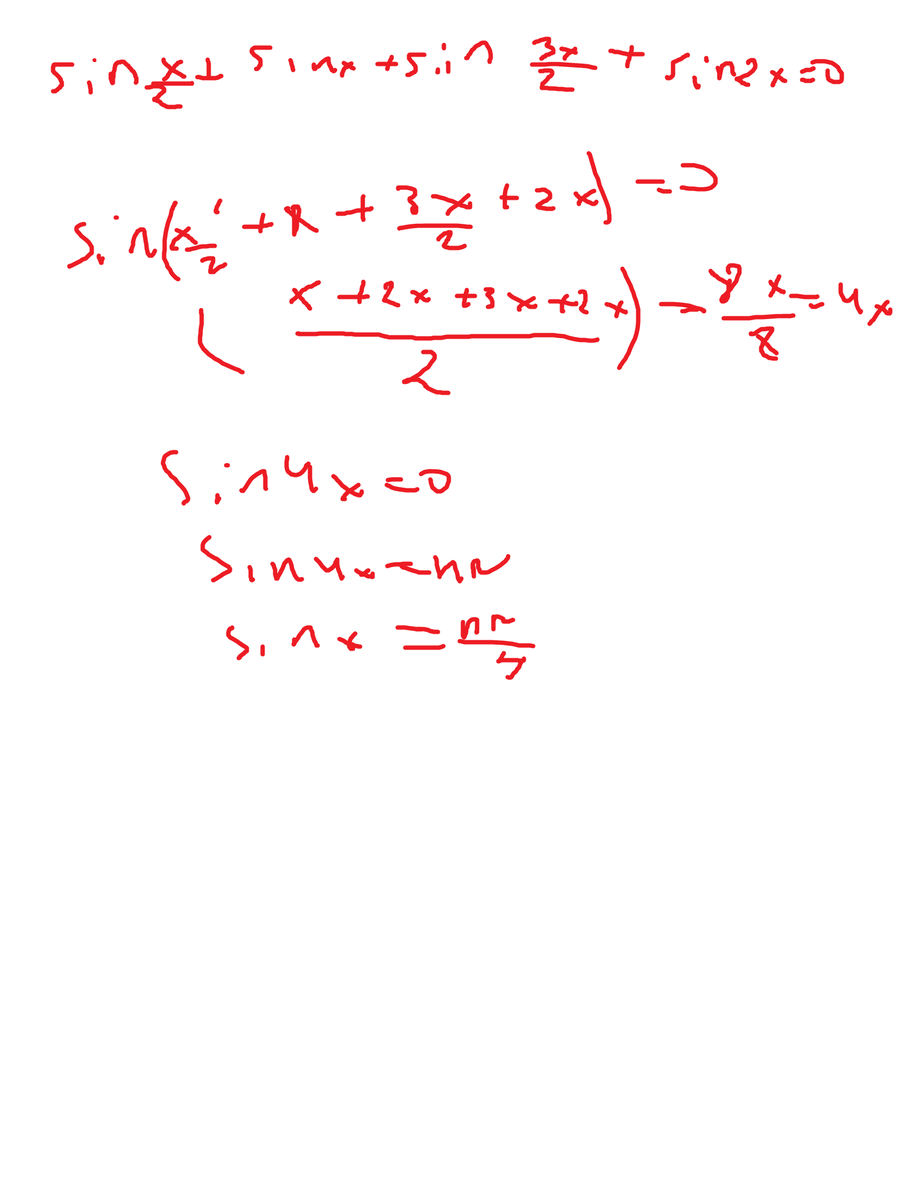 sin x/2 + sinx + sin 3x/2 + sin2x=0
sin(x/2 + x + 3x/2 + 2x) = 0
( x + 2x + 3x + 2x / 2 ) = 8x/8 = 4x
Sin4x=0
Sin4x=nπ
sinx = nπ/4